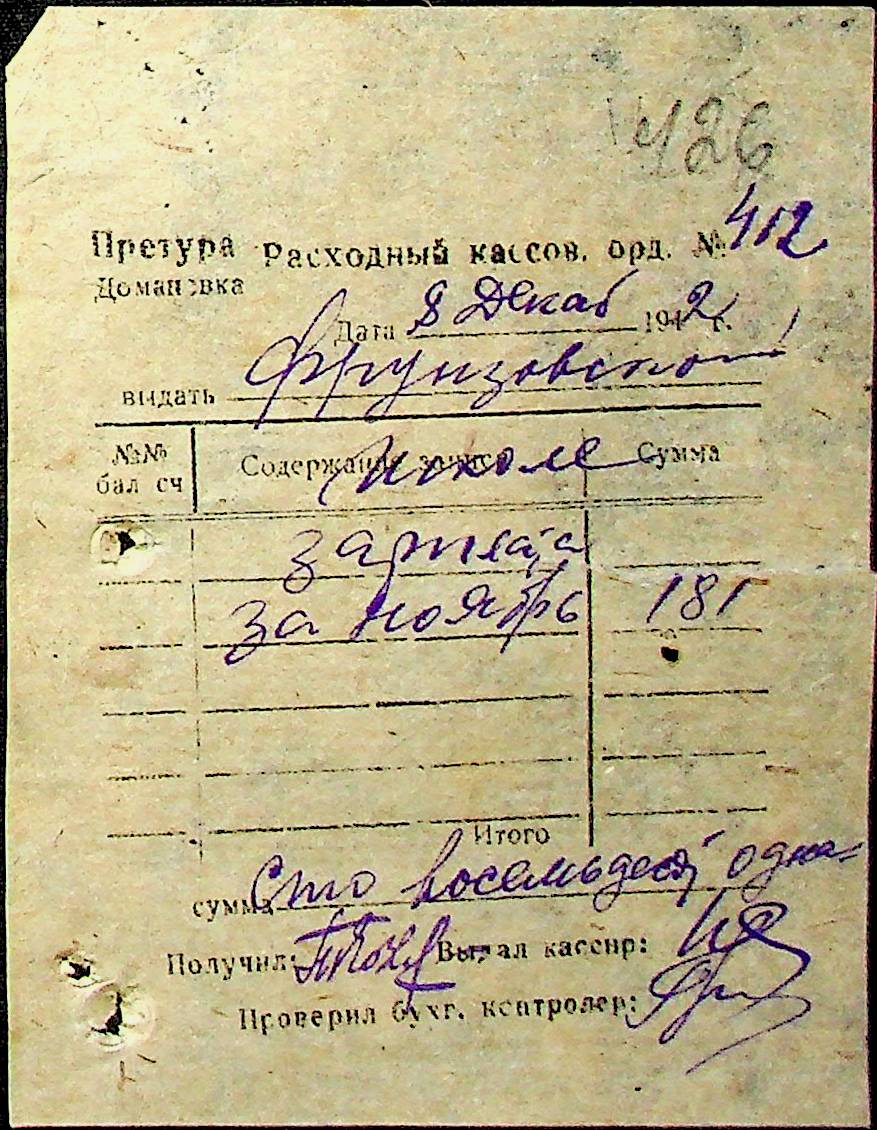 426
Претура Расходный кассов. орд. № 412
Домановка
Дата 8 Декаб 1942 г.
выдать Фрунзовской
школе
№№ бал сч Содержание записи Сумма
зарплата
за ноябрь 181
Итого
сумма Сто восемьдесят одна
Получил: Выдал кассир:
Проверил бухг. контролер: